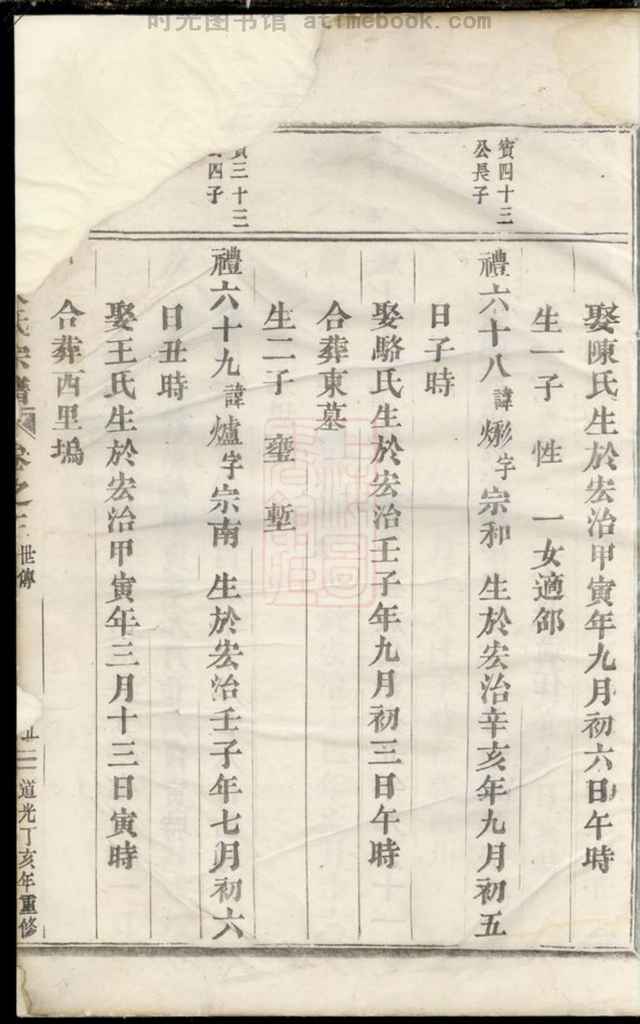 时光图书馆 atimebook.com
娶陳氏生於宏治甲寅年九月初六日午時
生一子 性 一女適邵
賓四十三
公長子
禮六十八 諱 字宗和 生於宏治辛亥年九月初五
日子時
娶駱氏生於宏治壬子年九月初三日午時
合葬東墓
生二子 壅 塹
三十三
四子
禮六十九 諱爐字宗南 生於宏治壬子年七月初六
日丑時
娶王氏生於宏治甲寅年三月十三日寅時
合葬西里塢
氏宗譜 卷之 世傳 道光丁亥年重修